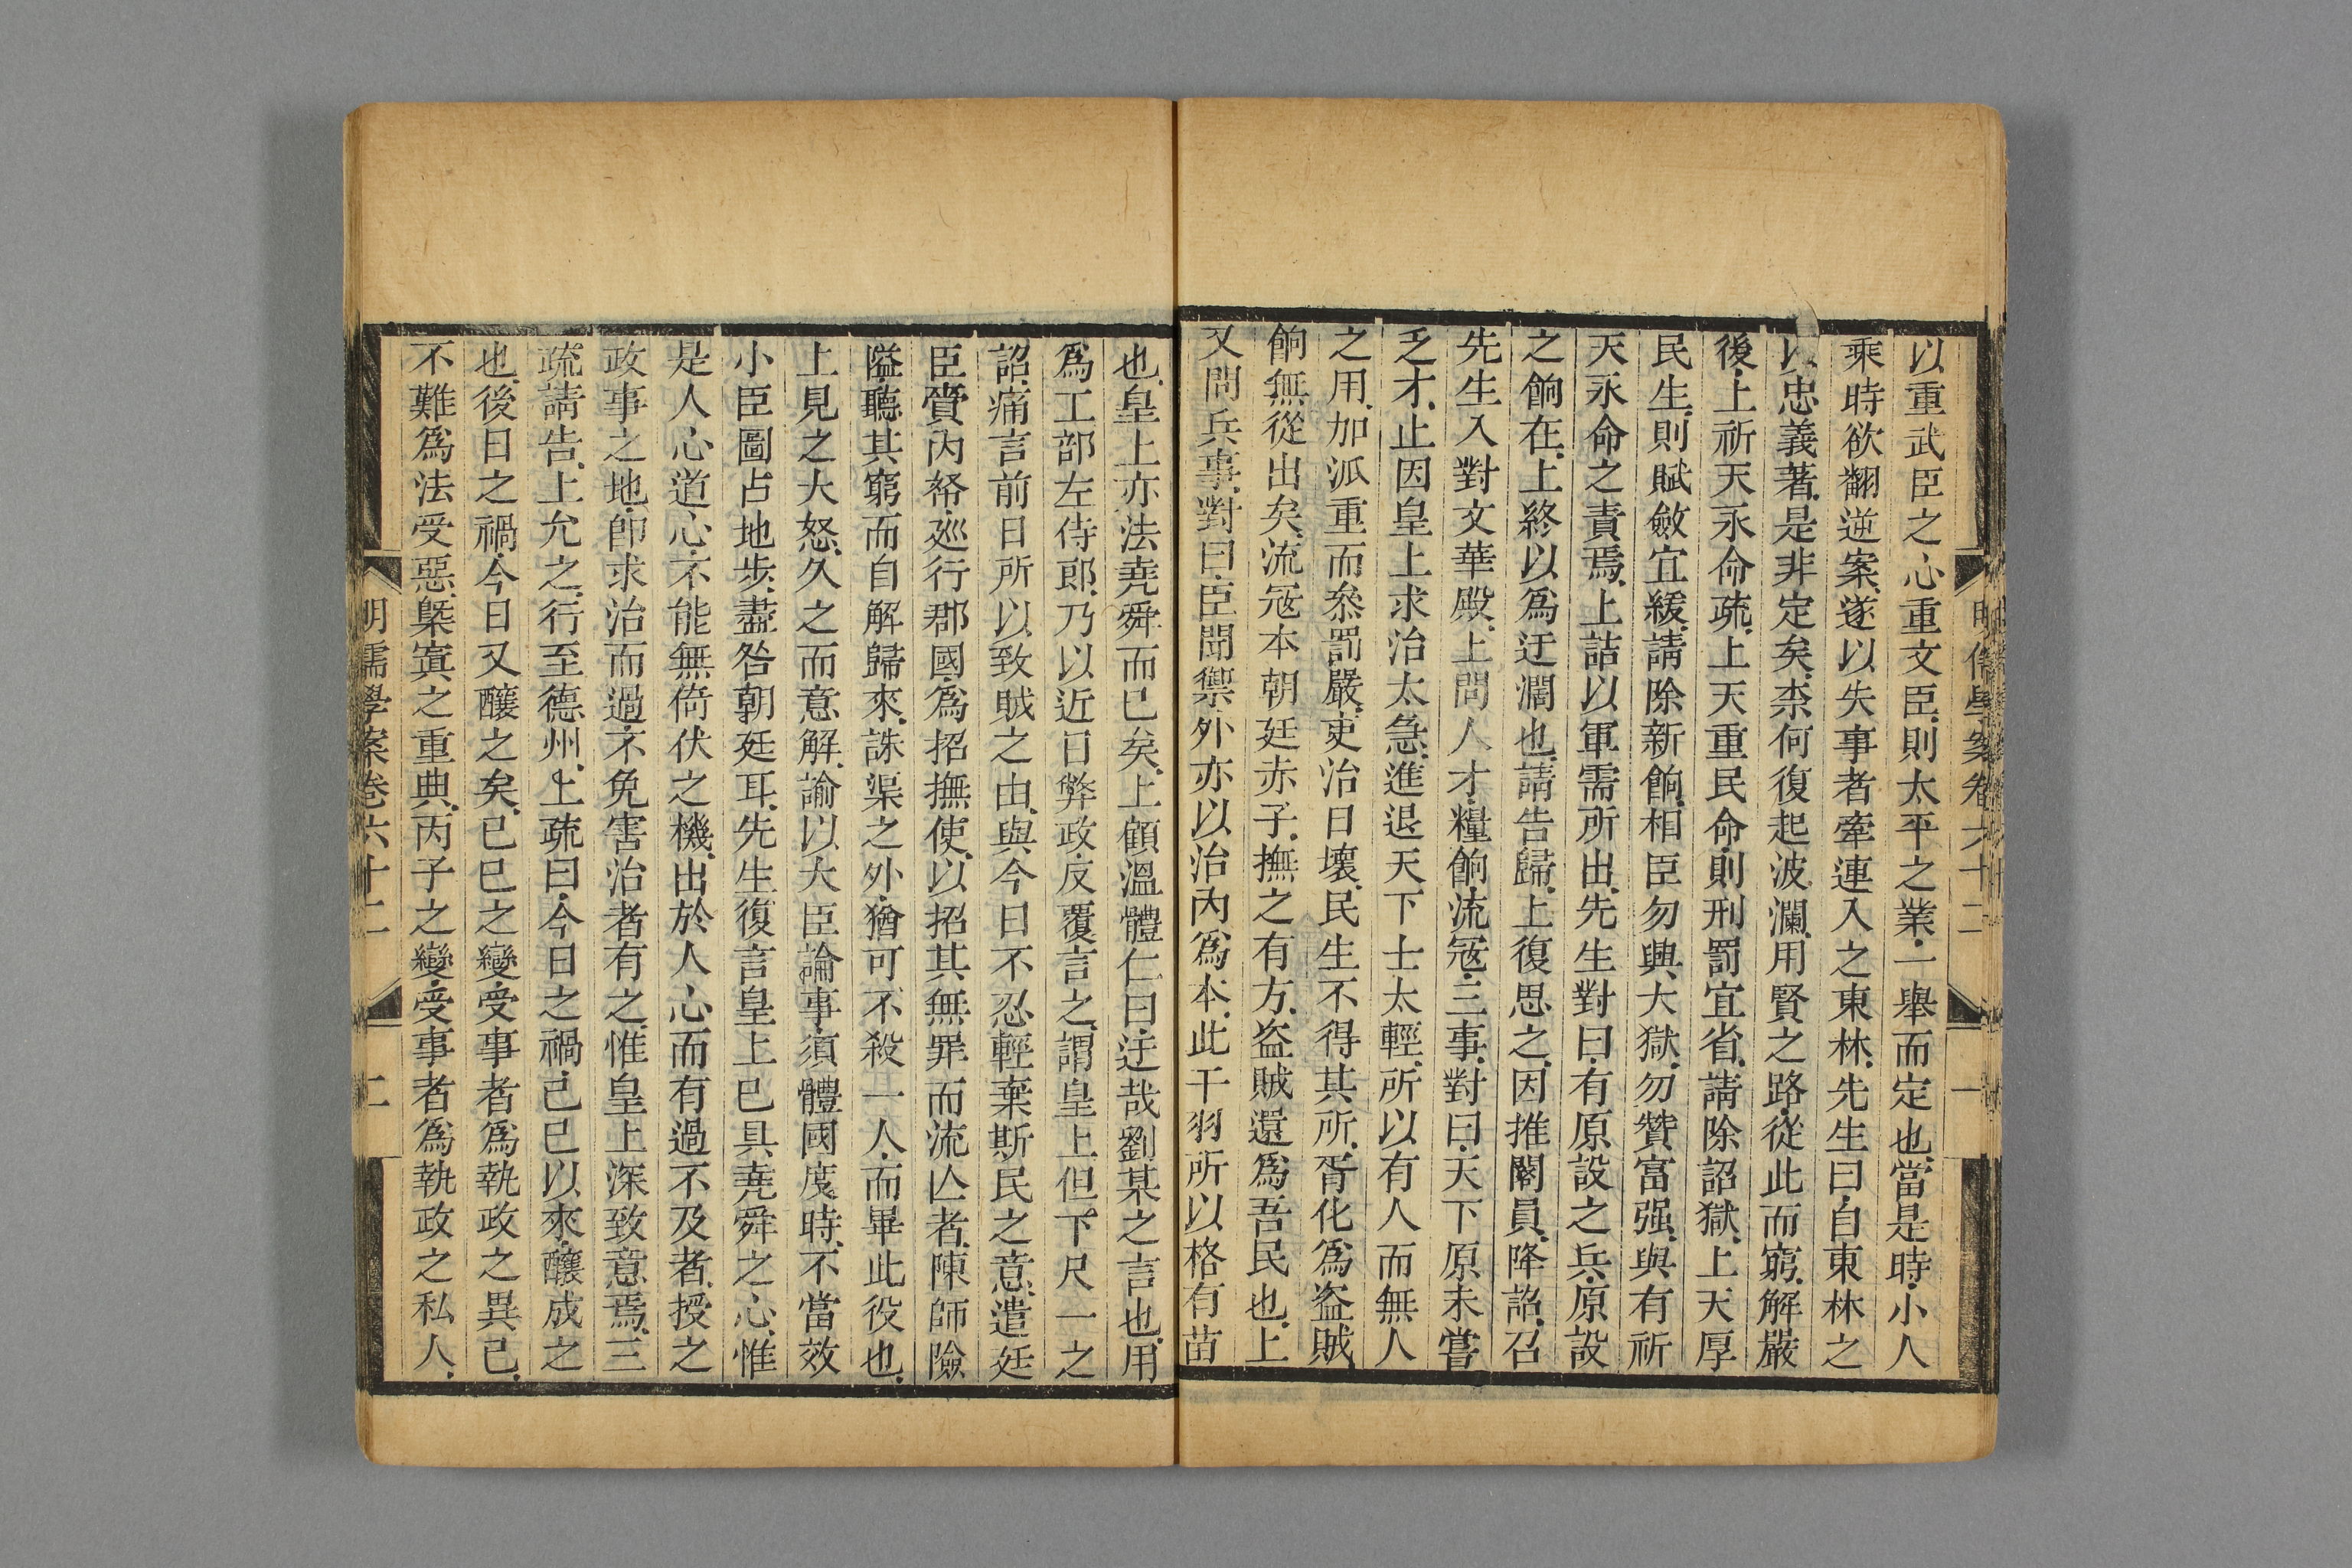 明儒學案卷六十二
一
以重武臣之心重文臣則太平之業一舉而定也當是時小人
乘時欲翻逆案遂以失事者牽連入之東林先生曰自東林之
以忠義著是非定矣柰何復起波瀾用賢之路從此而窮解嚴
後上祈天永命疏上天重民命則刑罰宜省請除詔獄上天厚
民生則賦斂宜緩請除新餉相臣勿興大獄勿贊富强與有祈
天永命之責焉上詰以軍需所出先生對曰有原設之兵原設
之餉在上終以爲迂濶也請告歸上復思之因推閣員降詔召
先生入對文華殿上問人才糧餉流寇三事對曰天下原未嘗
乏才止因皇上求治太急進退天下士太輕所以有人而無人
之用加派重而叅罰嚴吏治日壞民生不得其所胥化爲盜賊
餉無從出矣流寇本朝廷赤子撫之有方盜賊還爲吾民也上
又問兵事對曰臣聞禦外亦以治内爲本此干羽所以格有苗
也皇上亦法堯舜而已矣上顧溫體仁曰迂哉劉某之言也用
爲工部左侍郎乃以近日弊政反覆言之謂皇上但下尺一之
詔痛言前日所以致賊之由與今日不忍輕棄斯民之意遣廷
臣賫内帑廵行郡國爲招撫使以招其無罪而流亾者陳師險
隘聽其窮而自解歸來誅渠之外猶可不殺一人而畢此役也
上見之大怒久之而意解諭以大臣論事須體國度時不當效
小臣圖占地步盡咎朝廷耳先生復言皇上已具堯舜之心惟
是人心道心不能無倚伏之機出於人心而有過不及者授之
政事之地卽求治而過不免害治者有之惟皇上深致意焉三
疏請告上允之行至德州上疏曰今日之禍己巳以來釀成之
也後日之禍今日又釀之矣己巳之變受事者爲執政之異己
不難爲法受惡槩寘之重典丙子之變受事者爲執政之私人
明儒學案卷六十二
二